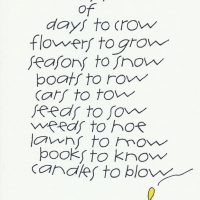 of
days to crow
flowers to grow
seasons to snow
boats to row
cars to tow
seeds to sow
weeds to hoe
lawns to mow
books to know
candles to blow